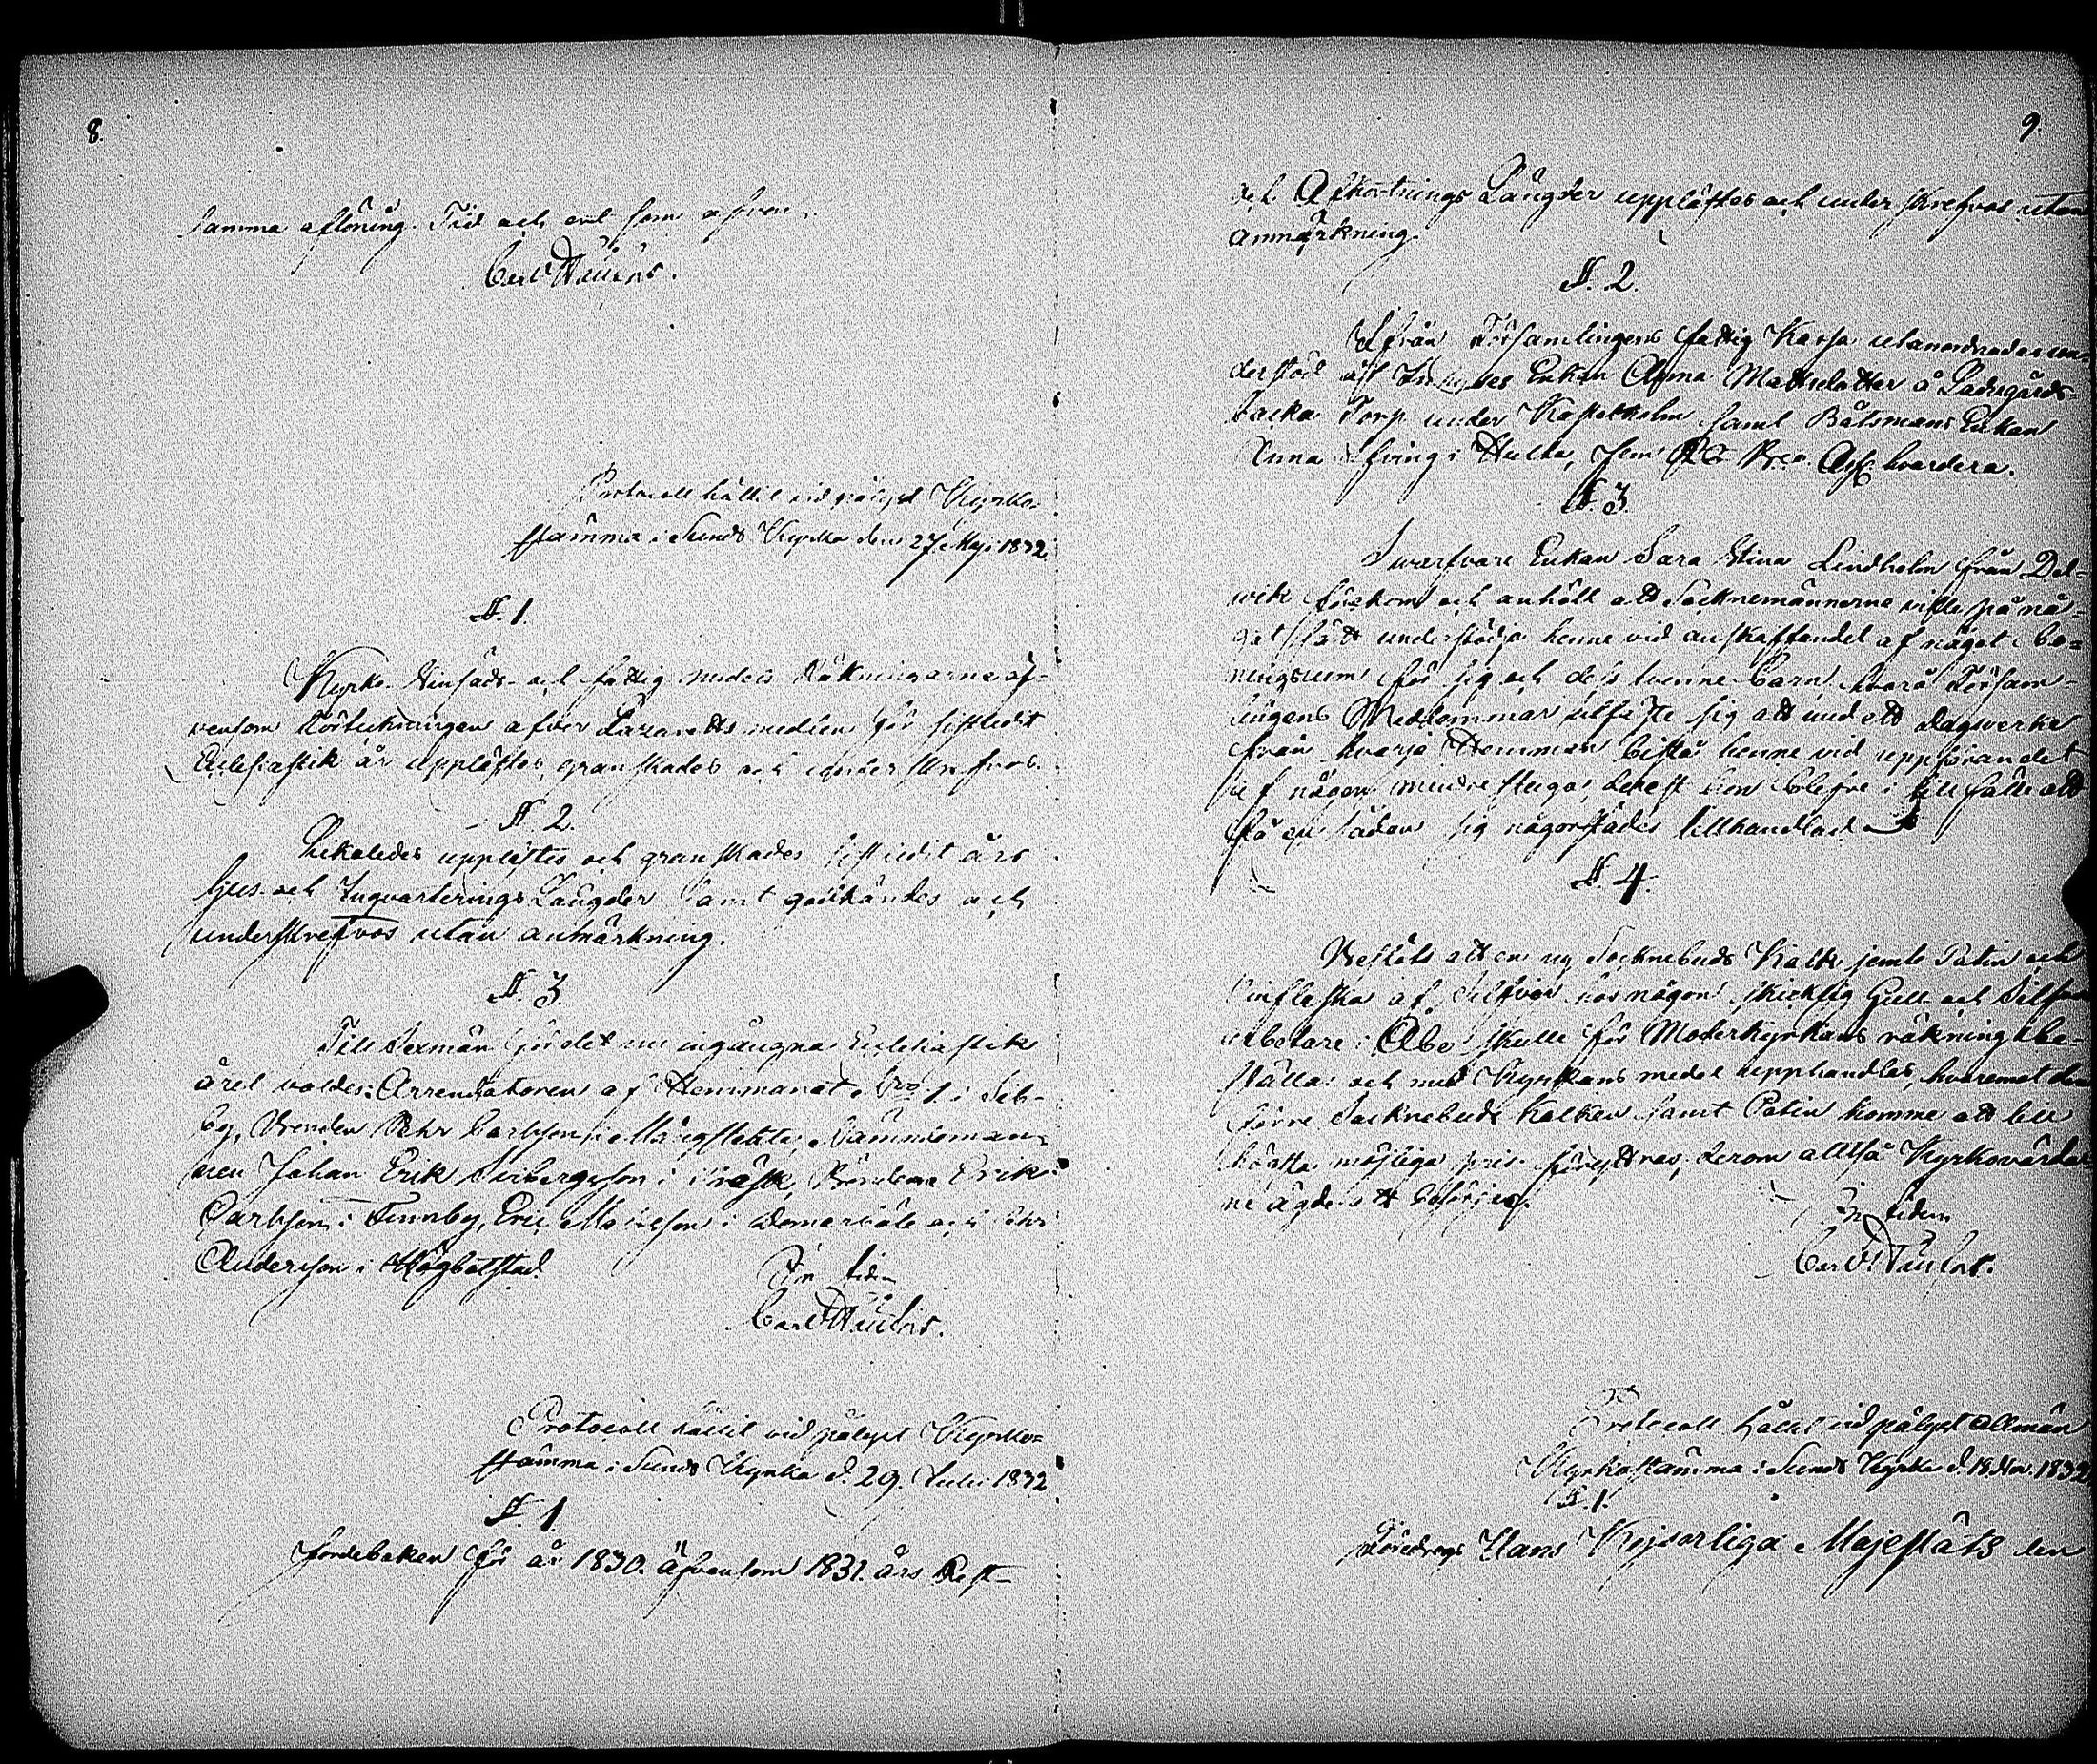 8.
samma aflöning. Tid och ort som ofvan.
Carl
Protocoll hållit vid pålyst Kyrko-
stämma i Sunds Kyrka den 27 Maji 1832.
§. 1.
Kyrko- och fattig medels Räkningarne äf-
vensom Förtekningen öfver Lazaretts medlen för sistledit
Eclesiastik år upplästes, granskades och underskrefvos.
§. 2.
Likaledes upplästes och granskades sistledit års
ljus- och Inqvarterings Längder samt godkändes och
underskrefvos utan anmärkning.
§. 3.
Till Sexmän för det nu ingångna Eclesiastik
året valdes: Arrendatoren af Hemmanet Nro 1 i Sib-
by, Bonden Pehr Carlsson i Mångstekta, Nämndeman-
nen Johan Erik i Träsk, Bönderne Erik
Carlsson i Finnby, Eric Mattsson i Domarböle och Pehr
Andersson i Högbolstad.
In fidem
Carl
Protocoll hållit vid pålyst Kyrko-
stämma i Sunds Kyrka d. 29. Julii 1832
§. 1.
Jordeboken för år 1830. äfvensom 1831. års Rest-
9.
och Afkortnings Längder upplästes och underskrefvos utan
anmärkning.
§. 2.
Ifrån Församlingens fattig Kassa utanordnades un-
derstöd åt Enkan Anna Mattsdotter å
backa Torp under Kastelholm samt Båtsmans Enkan
Anna i Hulta, fem Rbl. Bco Ass. hvardera.
§. 3.
Svarfvare Enkan Sara Stina Lindholm från Del-
wik förekom och anhöll att Socknemännerne ville på nå-
got sätt understödja henne vid anskaffandet af något bo-
ningsrum för sig och dess tvenne barn, hvarå Försam-
lingens Medlemmar utfäste sig att med ett dagsverke
från hvarje Hemman bistå henne vid uppförandet
af någon mindre stuga, derest hon blefve i tillfälle att
få en sådan sig någorstädes tillhandlad.
§. 4.
Beslöts att en ny Sockenbuds Kalk jemte Patin och
vinflaska af Silfver hos någon skicklig Gull och Silfver
arbetare i Åbo skulle för Moderkyrkans räkning be-
ställas och med Kyrkans medel upphandlas, hvaremot den
förre Sockenbuds Kalken samt Patin komme att till
högsta möjliga pris föryttras, derom alltså Kyrkovärdar-
ne ägde att besörja.
In fidem
Carl
Protocoll hållit vid pålyst allmän
Kyrkostämma i Sunds Kyrka d. 18. Nov. 1832
§. 1.
Föredrogs Hans Kejserliga Majestäts den